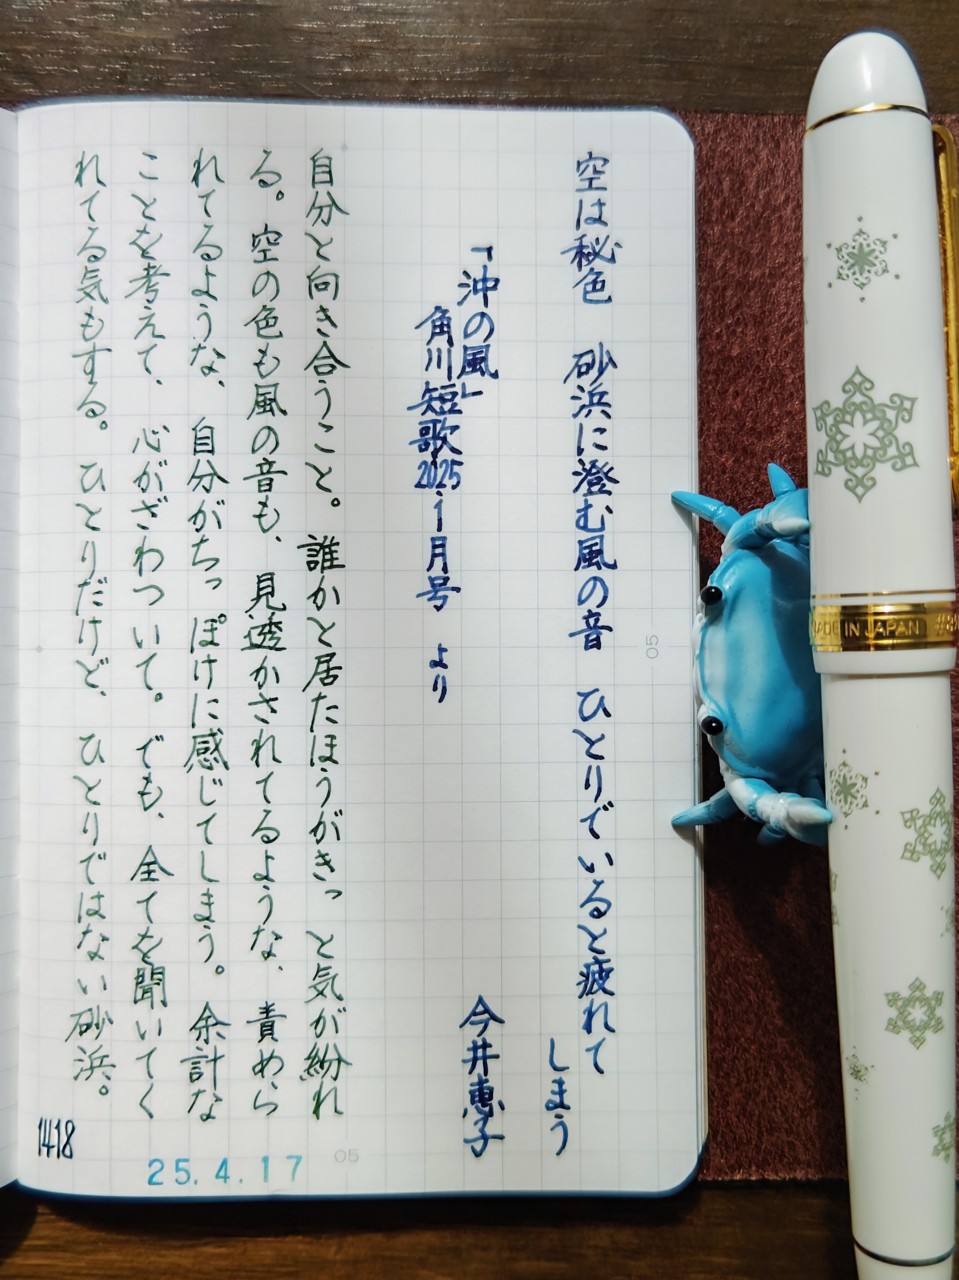 空は秘色　砂浜に澄む風の音　ひとりでいると疲れて
しまう
「沖の風」
今井恵子
角川短歌2025.1月号　より
自分と向き合うこと。誰かと居たほうがきっと気が紛れ
る。空の色も風の音も、見透かされてるような、責めら
れてるような、自分がちっぽけに感じてしまう。余計な
ことを考えて、心がざわついて。でも、全てを聞いてく
れてる気もする。ひとりだけど、ひとりではない砂浜。
1418
25.4.17
05
05
MADE IN JAPAN